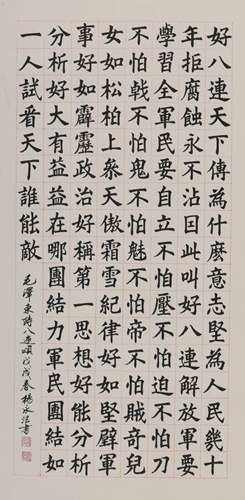 好八連天下傳為什麼意志堅為人民幾十
年拒腐蝕永不沾因此叫好八連解放軍要
學習全軍民要自立不怕壓不怕迫不怕刀
不怕戟不怕鬼不怕魅不怕帝不怕賊奇兒
女如松柏上叅天傲霜雪紀律好如堅壁軍
事好如霹靂政治好稱第一思想好能分析
分析好大有益益在哪團結力軍民團結如
一人試看天下誰能敵
毛澤東詩八連頌戊戌春楊永法書